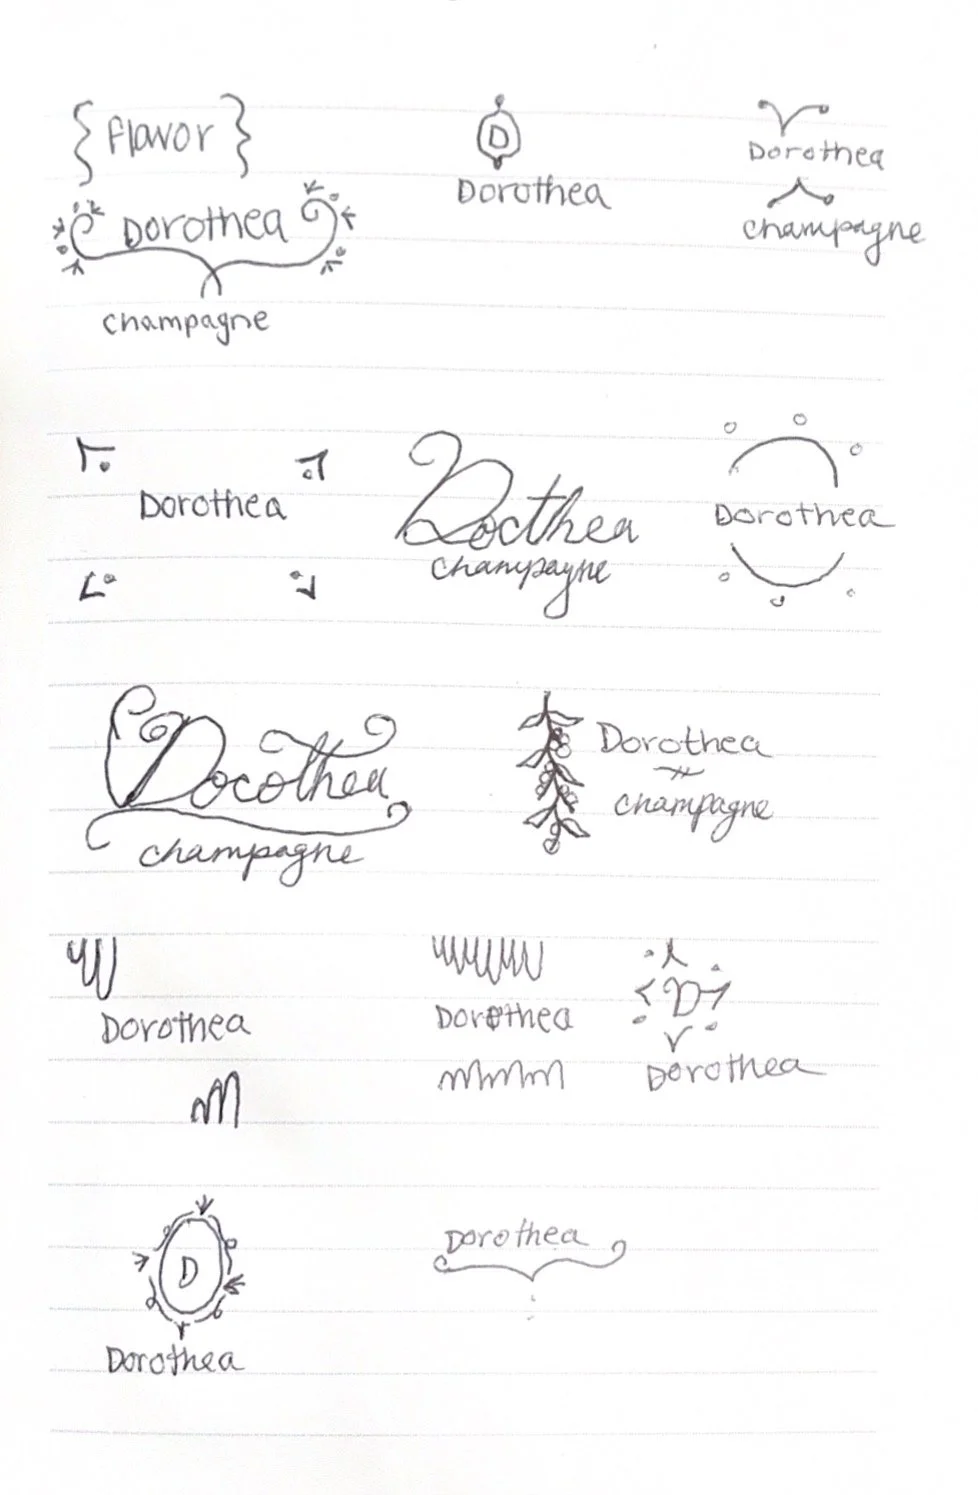 {Flavor}
Dorothea
champagne
D
Dorothea
Dorothea
champagne
Dorothea
Docthea
champagne
Dorothea
Docothea
champagne
Dorothea
champagne
Dorothea
Dorothea
D
Dorothea
D
Dorothea
Dorothea